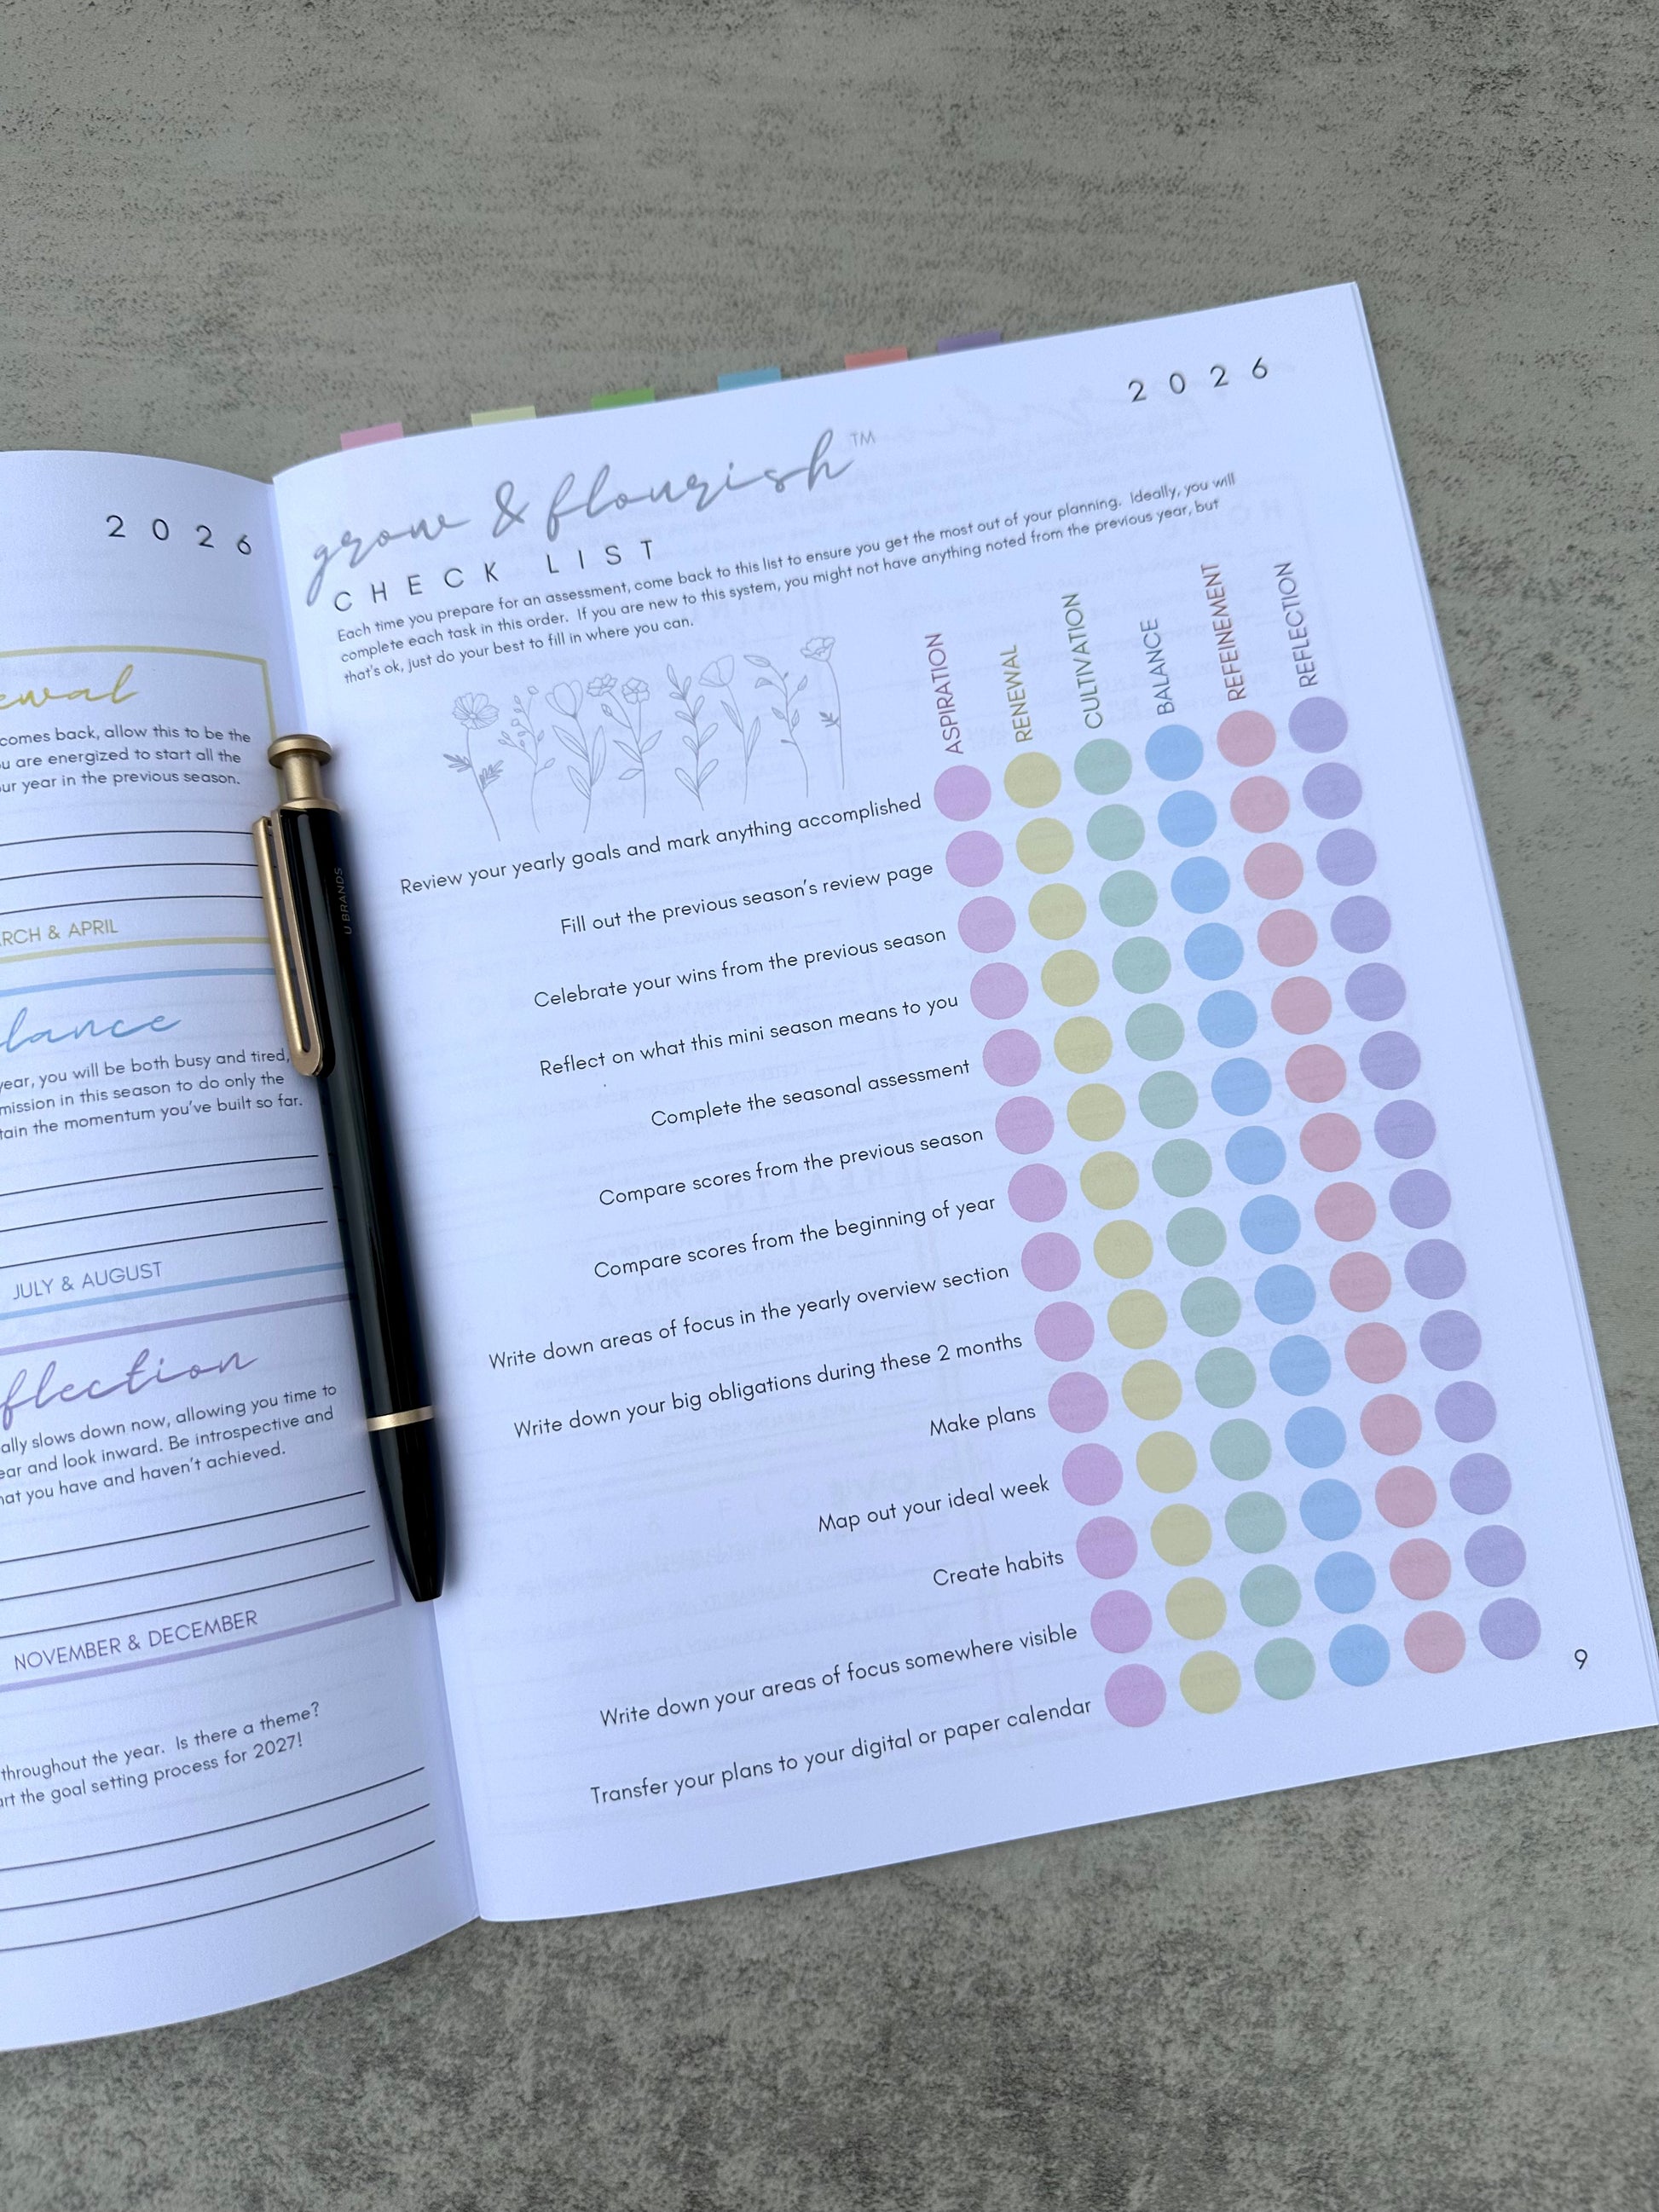 2026
ewal
comes back, allow this to be the
u are energized to start all the
ur year in the previous season.
RCH & APRIL
lance
year, you will be both busy and tired,
mission in this season to do only the
tain the momentum you've built so far.
JULY & AUGUST
flection
ally slows down now, allowing you time to
ear and look inward. Be introspective and
hat you have and haven't achieved.
NOVEMBER & DECEMBER
throughout the year. Is there a theme?
art the goal setting process for 2027!
U BRANDS
2026
grow & flourish™
CHECK LIST
Each time you prepare for an assessment, come back to this list to ensure you get the most out of your planning. Ideally, you will
complete each task in this order. If you are new to this system, you might not have anything noted from the previous year, but
that's ok, just do your best to fill in where you can.
ASPIRATION
RENEWAL
CULTIVATION
BALANCE
REFEINEMENT
REFLECTION
Review your yearly goals and mark anything accomplished
Fill out the previous season's review page
Celebrate your wins from the previous season
Reflect on what this mini season means to you
Complete the seasonal assessment
Compare scores from the previous season
Compare scores from the beginning of year
Write down areas of focus in the yearly overview section
Write down your big obligations during these 2 months
Make plans
Map out your ideal week
Create habits
Write down your areas of focus somewhere visible
Transfer your plans to your digital or paper calendar
9